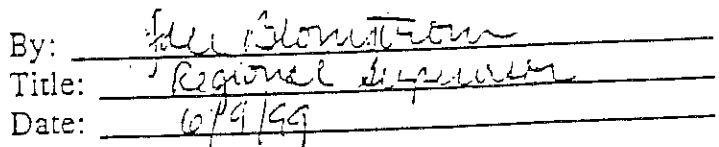 By: Blomstrom
Title: Regional Supervisor
Date: 6/9/99